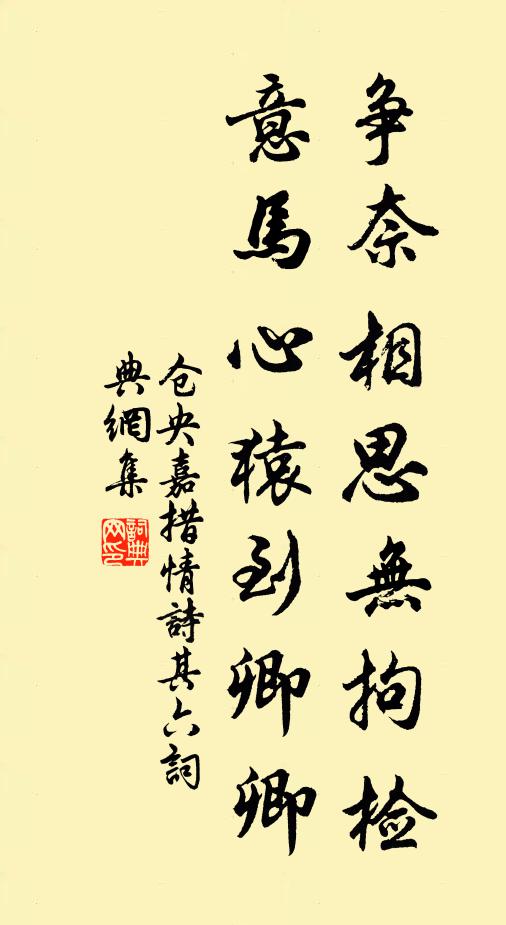 争奈相思無拘检
意馬心猿到卿卿
仓央嘉措情詩其六詞
典網集
詞典
网印